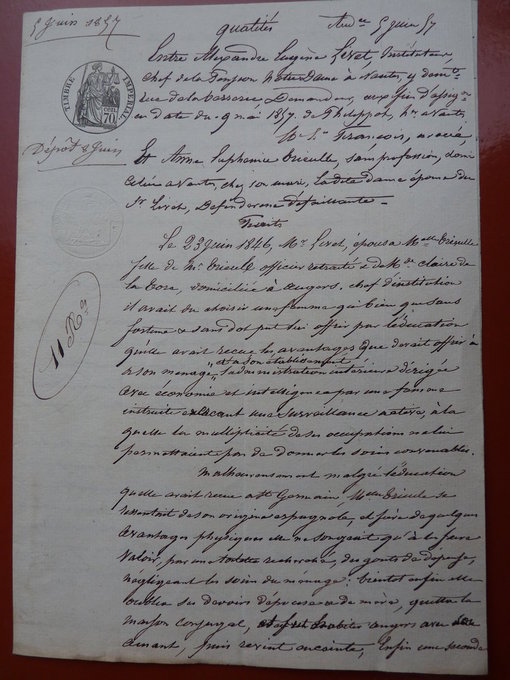 5 Juin 1857
qualités
Aud ce 5 Juin 57
TIMBRE IMPÉRIAL
70
Entre Alexandre Eugène Livet, Instituteur
chef de la Pension Notre Dame à Nantes, y domt
rue de la Demandeur, aux fins d'assign
en date du 9 mai 1857. de Philippot, hr à Nantes,
Mr Sn François, avoué,
Dépôt 8 Juin
Et Anne Euphémie sans profession, domi
ciliée à Nantes, chez son mari, la dite dame épouse du
Sr Livet, Défenderesse défaillante
Faits
Le 23 juin 1846, Mr Livet, épousa Melle
fille de Mr officier retraité & de Me Claire de
la domiciliée à Angers. Chef d'institution
il avait du choisir une femme qui bien que sans
fortune & sans dot put lui offrir par l'éducation
qu'elle avait reçue les avantages que devait offrir à
et à son établissement
& son ménage, l'administration intérieure dirigée
avec économie et intelligence par une femme
instruite exerçant une surveillance active, à la
quelle la multiplicité de ses occupations ne lui
permettaient pas de donner les soins convenables.
11 Rg
Malheureusement malgré l'éducation
quelle avait reçue à St Germain, Melle se
ressentait de son origine espagnole, et fière de quelques
avantages physiques elle ne songeait qu'à les faire
valoir, par une toilette recherchée, des goûts de dépense,
négligeant les soins du ménage: bientôt enfin elle
oublia ses devoirs d'épouse & de mère, quitta la
maison conjugal, Angers avec
amant, puis revint enceinte, Enfin une seconde